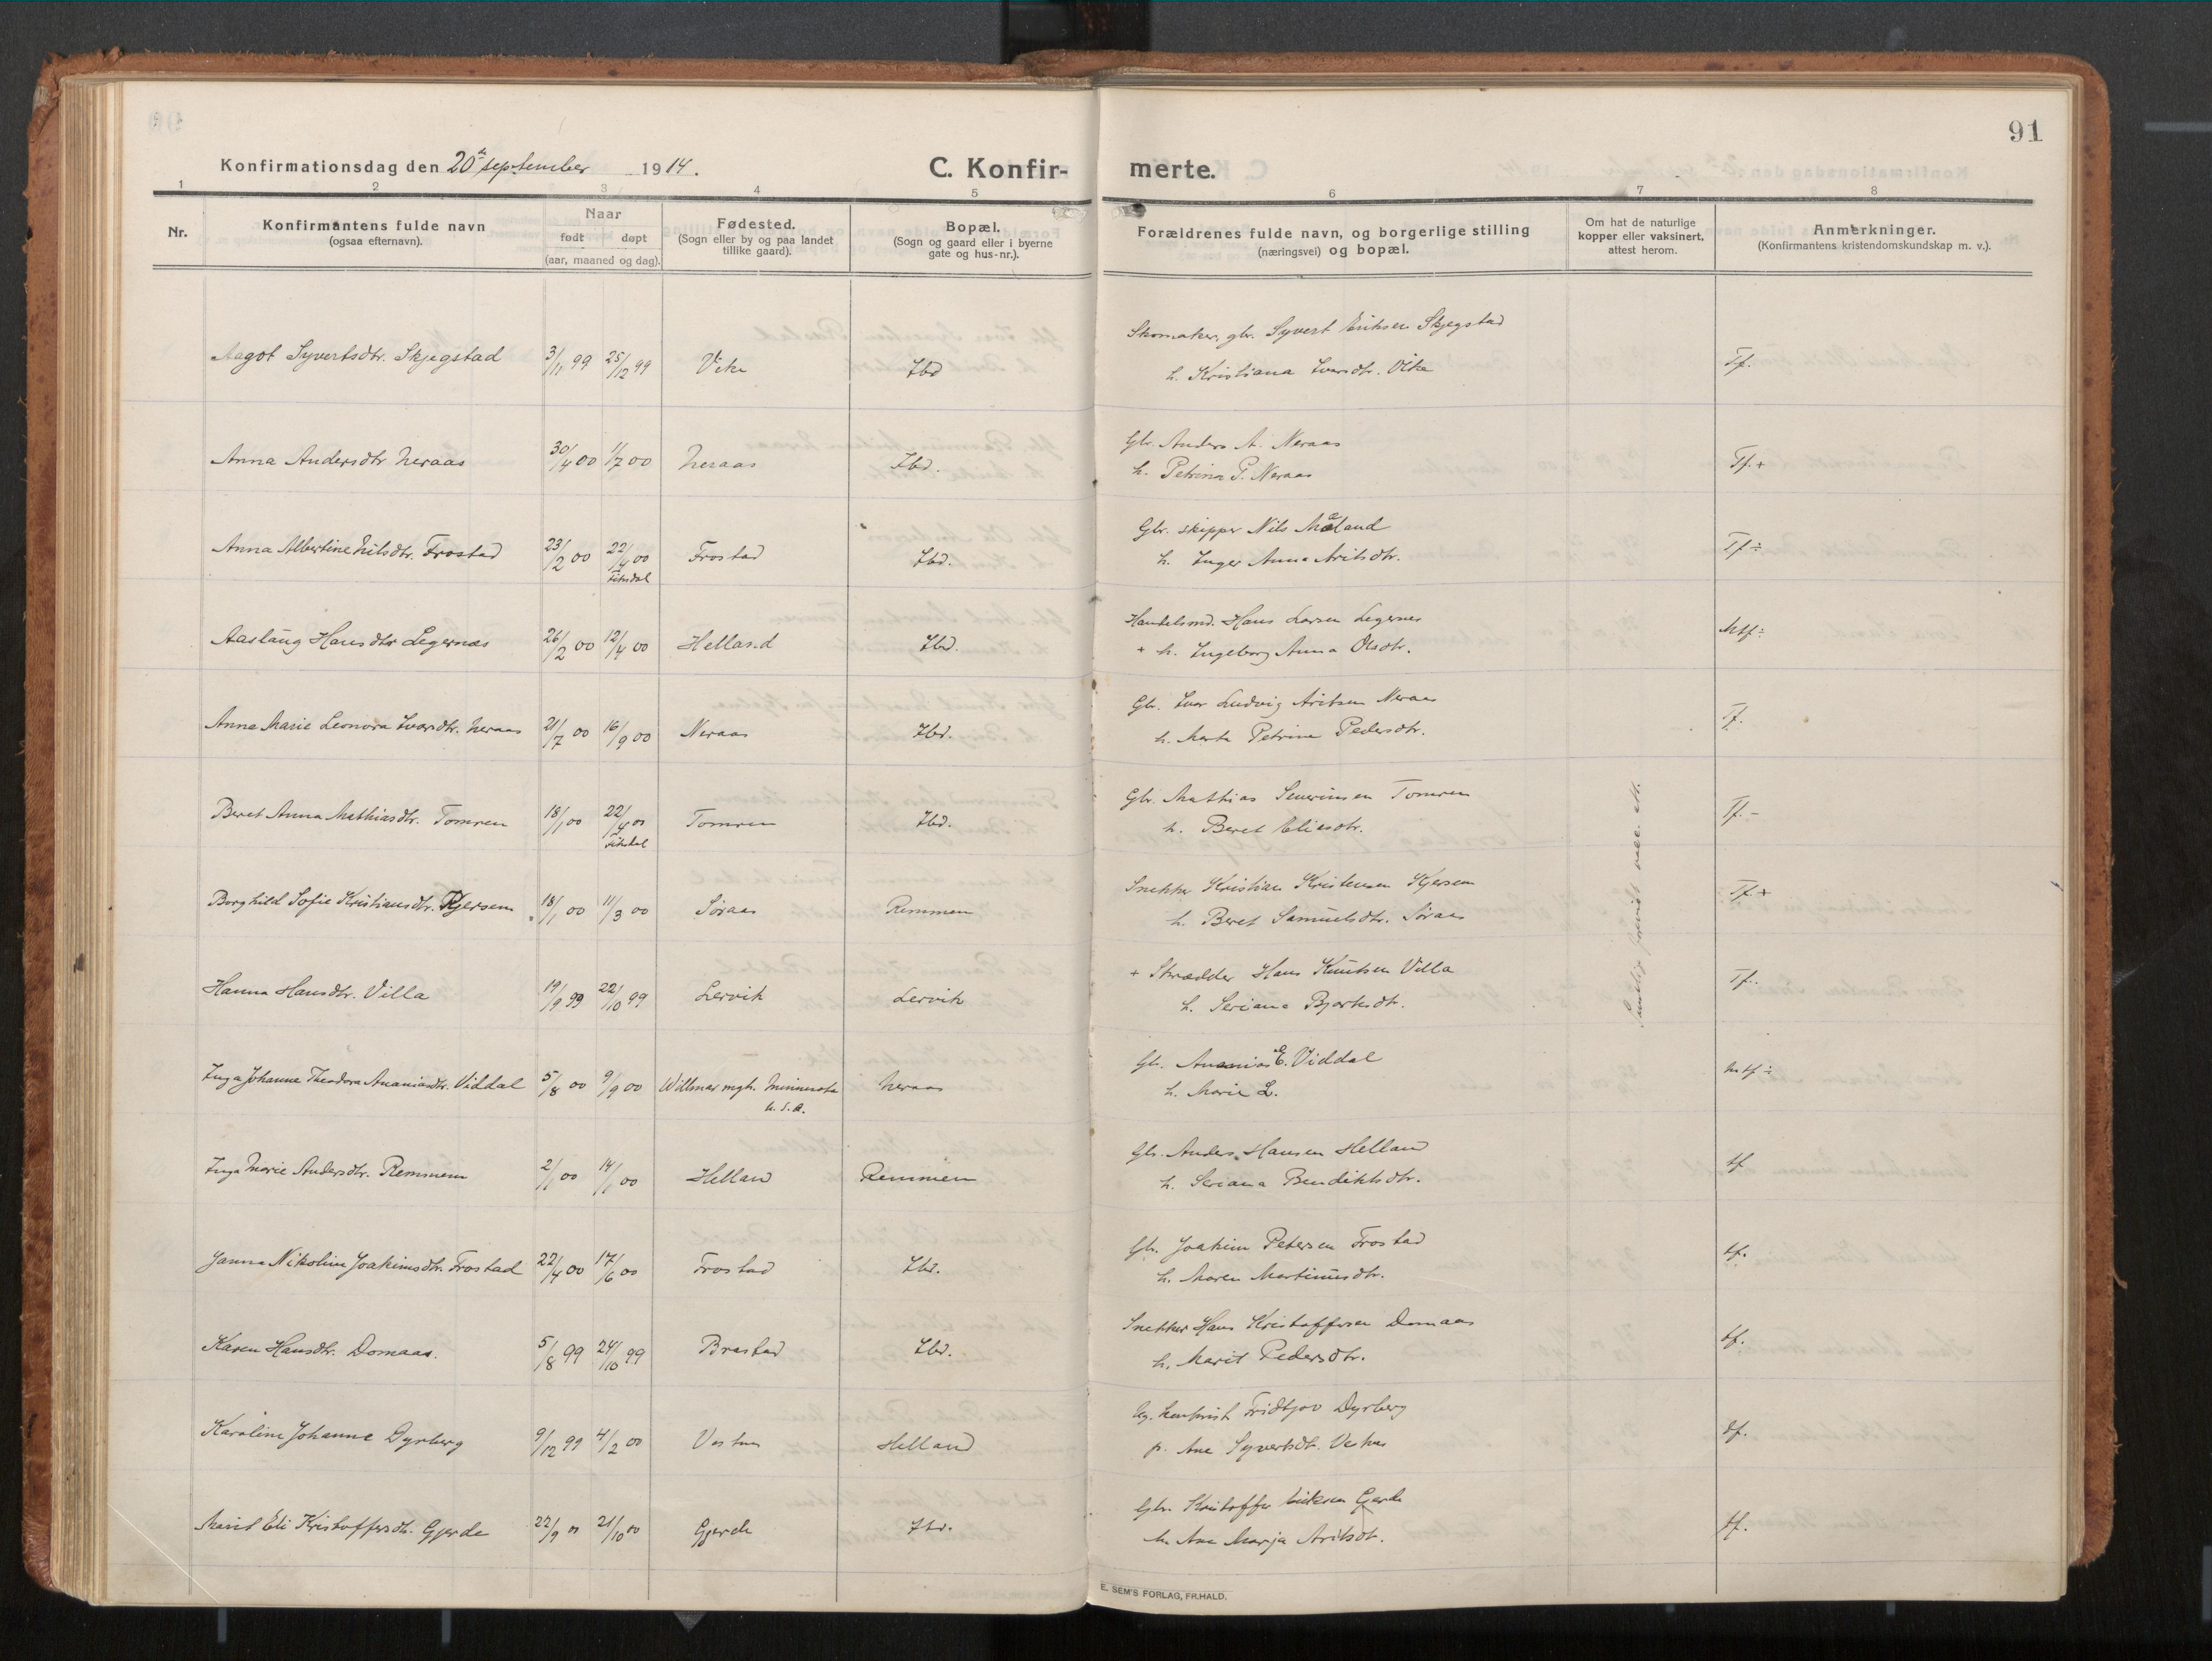 91
Konfirmationsdag den 20de september 1914.
C. Konfir-
merte.
1 2 3 4 5 6 7 8
Nr.
Konfirmantens fulde navn
(ogsaa efternavn).
Naar
født døpt
(aar, maaned og dag).
Fødested.
(Sogn eller by og paa landet
tillike gaard).
Bopæl.
(Sogn og gaard eller i byerne
gate og hus-nr.).
Forældrenes fulde navn, og borgerlige stilling
(næringsvei) og bopæl.
Om hat de naturlige
kopper eller vaksinert,
attest herom.
Anmerkninger.
(Konfirmantens kristendomskundskap m. v.).
Skomaker, gbr. Syvert Eriksen Skjegstad
Aagot Syvertsdtr. Skjegstad 3/11 99 25/12 99 Vike Ibd
h. Kristiana Ivarsdtr. Vike
Tf.
Gbr. Anders A. Neraas
Anna Andersdtr Neraas 30/4 00 1/7 00 Neraas Ibd.
h. Petrina P. Neraas
Tf. +
Gbr. skipper Nils Mæland
Anna Albertine Nilsdtr. Frostad 23/2 00 22/4 00 Frostad Ibd.
Fiksdal
h. Inger Anna Aritsdtr.
Tf ÷
Handelsmd. Hans Larsen Legernes
Aaslaug Hansdtr Legernæs 26/2 00 12/4 00 Helland Ibd.
+ h. Ingeborg Anna Olsdtr.
Mtf ÷
Gbr. Ivar Ludvig Aritsen Neraas
Anne Marie Leonora Ivarsdtr. Neraas 21/7 00 16/9 00 Neraas Ibd.
h. Marta Petrine Pedersdtr.
Tf.
Gbr. Mathias Severinsen Tomren
Beret Anna Mathiasdtr. Tomren 18/1 00 22/4 00 Tomren Ibd.
Fiksdal
h. Beret Eliasdtr.
Tf. -
Snekker Kristian Kristensen Kjersem
Borghild Sofie Kristiansdtr. Kjersem 18/1 00 11/3 00 Søraas Remmen
h. Beret Samuelsdtr. Søraas
Tf. +
+ Skrædder Hans Knutsen Villa
Hanna Hansdtr. Villa 19/9 99 22/10 99 Lervik Lervik
h. Seriana
Tf.
Gbr. Ananias E. Viddal
Inga Johanne Theodora Ananiasdtr. Viddal 5/8 00 9/9 00 Willmar mgh. Minnesota Neraas
U. S. A.
h. Marie L.
Mtf ÷
Gbr. Anders Hansen Helland
Inga Marie Andersdtr. Remmem 2/1 00 14/1 00 Helland Remmem
h. Seriana Bendiktsdtr.
tf
Gbr. Joakim Petersen Frostad
Janna Nikoline Joakimsdtr. Frostad 22/4 00 17/6 00 Frostad Ibd.
h. Maren Martinusdtr.
tf.
Snekker Hans Kristoffersen Domaas
Karen Hansdtr. Domaas. 5/8 99 24/10 99 Brastad Ibd.
h. Marit Pedersdtr.
tf.
Ug. Fridtjov Dyrberg
Karoline Johanne Dyrberg 9/12 99 4/2 00 Vestnes Helland
p. Ane Syvertsdtr. Vestnes
df.
Gbr. Kristoffer Eriksen Gjerde
Marit Eli Kristoffersdtr. Gjerde 22/9 00 21/10 00 Gjerde Ibd.
h. Ane Marja Aritsdtr.
tf.
E. SEM'S FORLAG, FR.HALD.